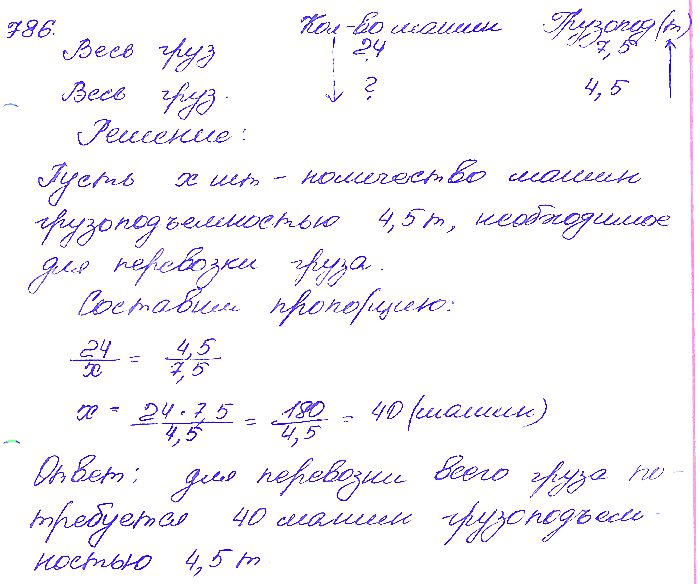 786. Кол-во машин Грузопод(т)
Весь груз 24 7,5
Весь груз. ? 4,5
Решение:
Пусть x шт - количество машин
грузоподъемностью 4,5 т, необходимое
для перевозки груза.
Составим пропорцию:
24/x = 4,5/7,5
x = 24·7,5/4,5 = 180/4,5 = 40 (машин)
Ответ: для перевозки всего груза по-
требуется 40 машин грузоподъем-
ностью 4,5 т